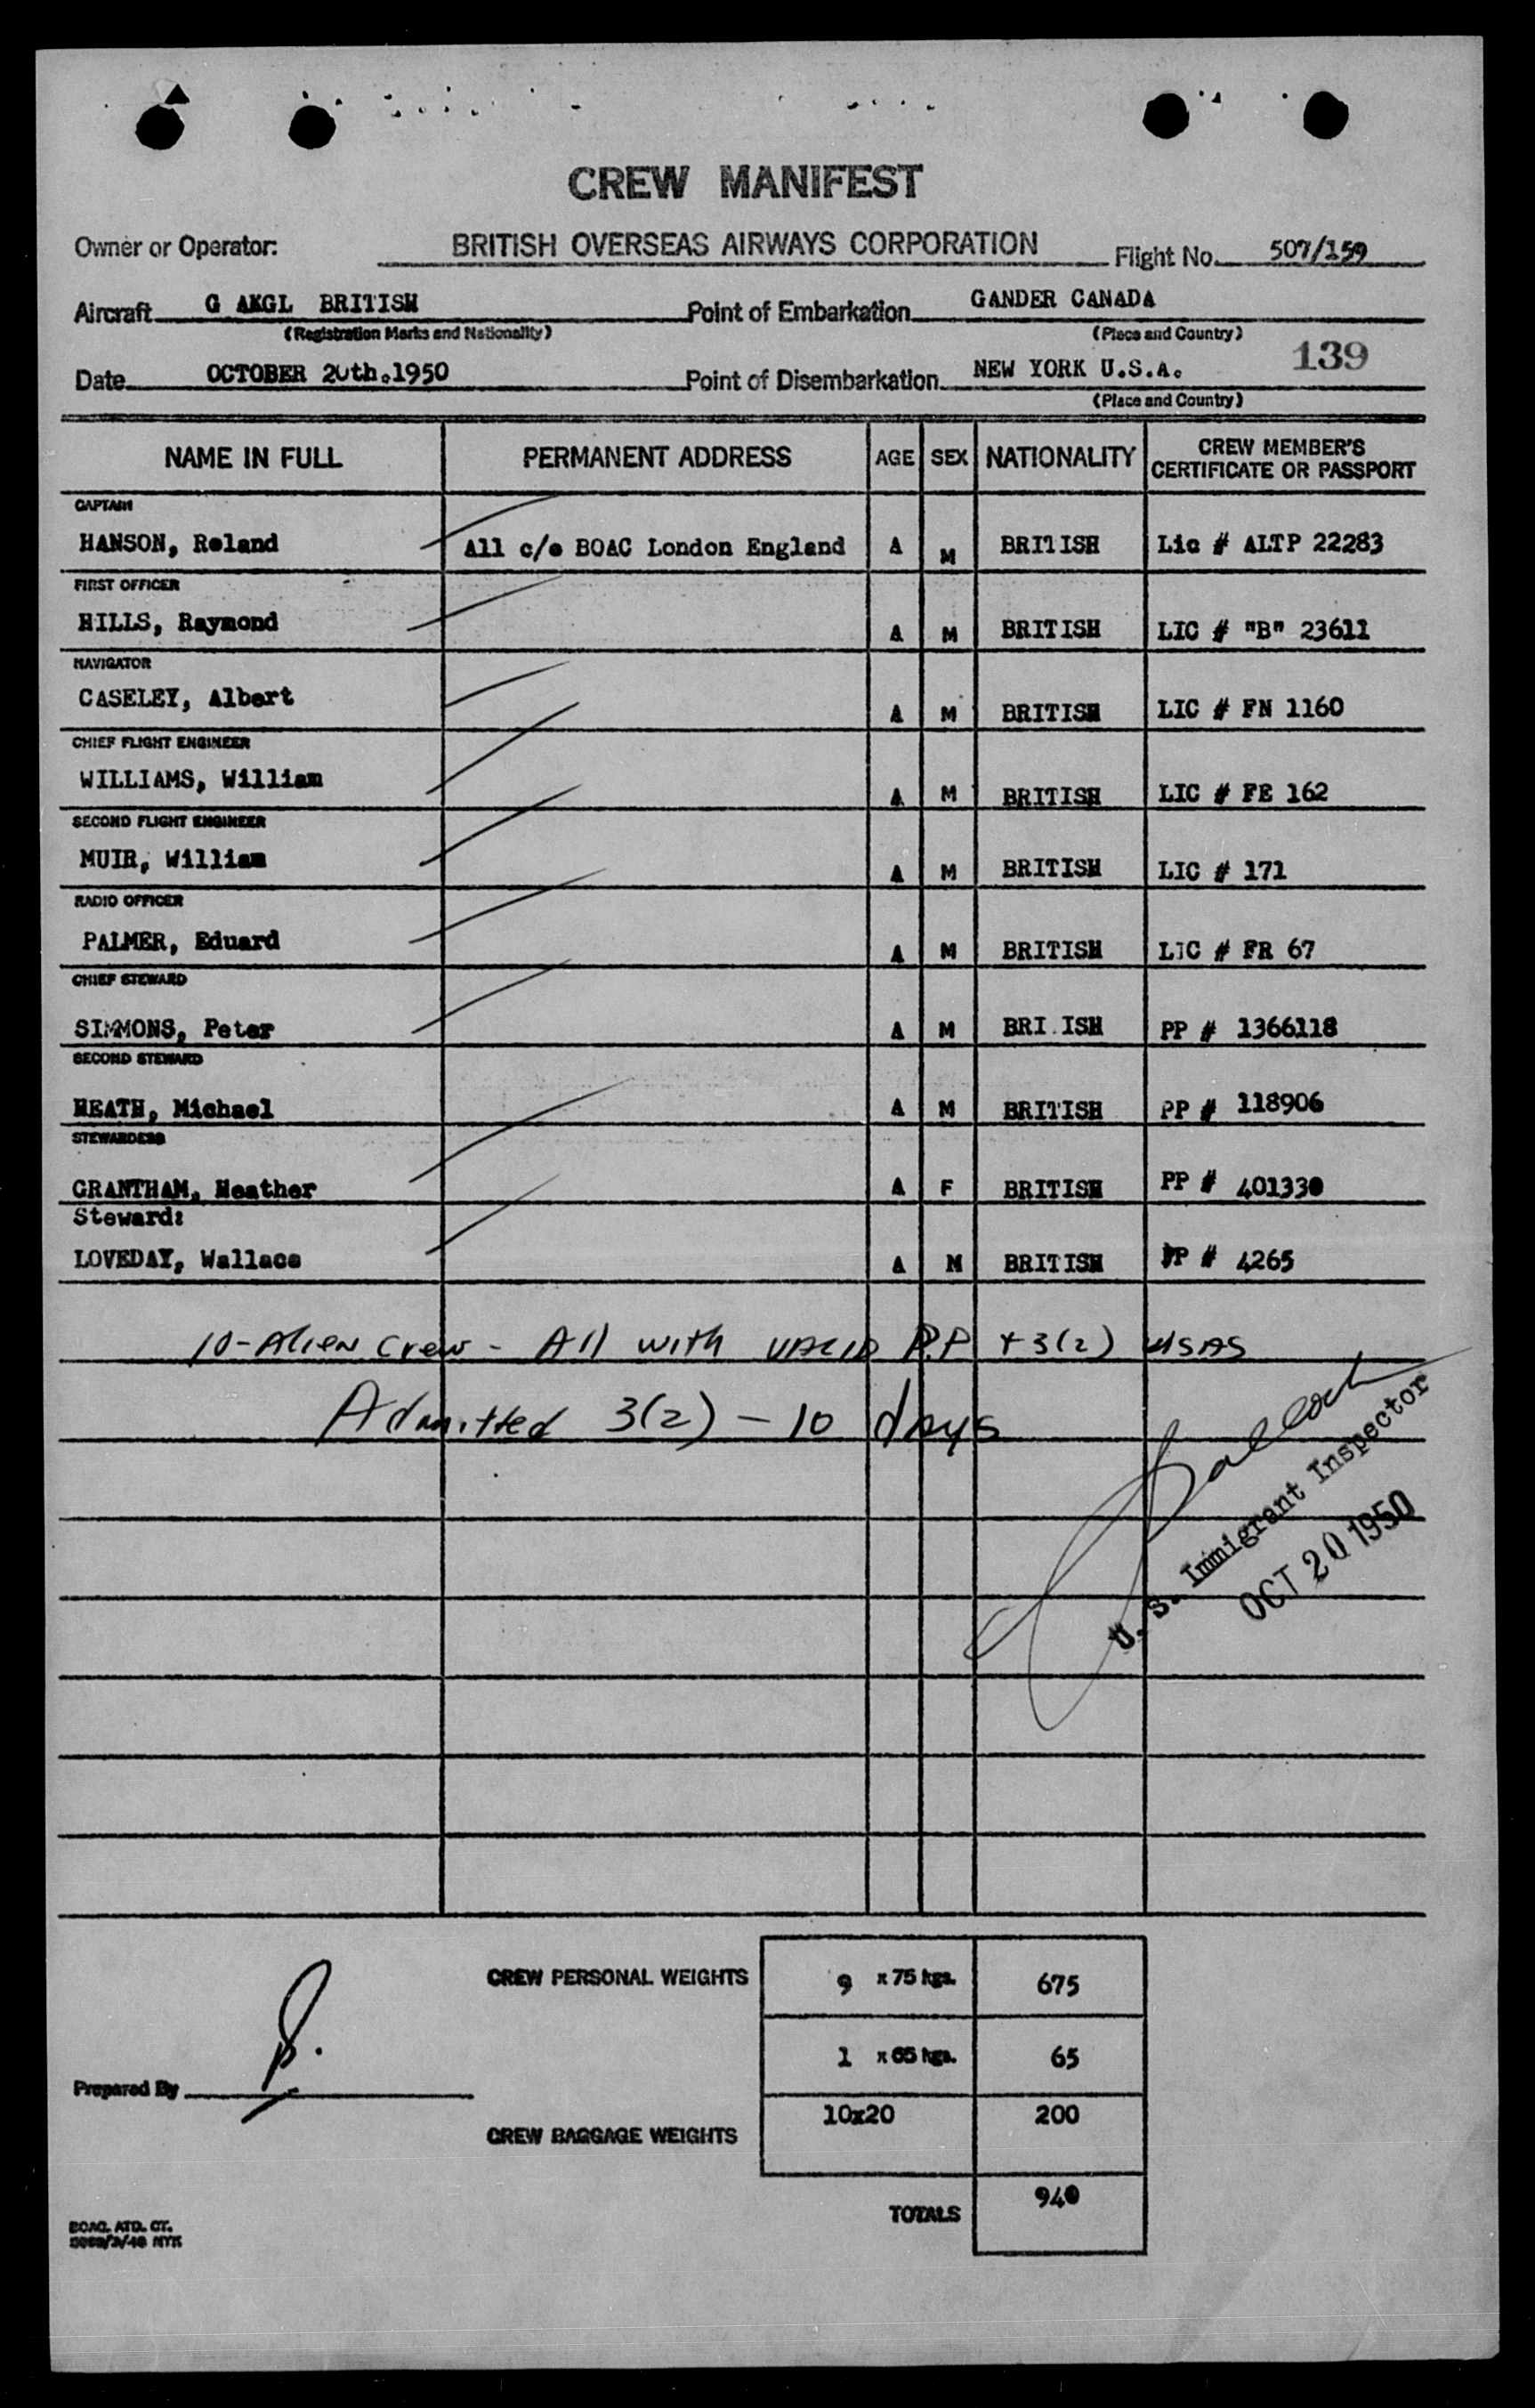 CREW MANIFEST
Owner or Operator: BRITISH OVERSEAS AIRWAYS CORPORATION Flight No. 507/159
Aircraft G AKGL BRITISH Point of Embarkation GANDER CANADA
(Registration Marks and Nationality) (Place and Country)
139
Date OCTOBER 20th.1950 Point of Disembarkation NEW YORK U.S.A.
(Place and Country)
NAME IN FULL PERMANENT ADDRESS AGE SEX NATIONALITY CREW MEMBER'S CERTIFICATE OR PASSPORT
CAPTAIN
HANSON, Roland All c/o BOAC London England A M BRITISH Lic # ALTP 22283
FIRST OFFICER
HILLS, Raymond A M BRITISH LIC # "B" 23611
NAVIGATOR
CASELEY, Albert A M BRITISH LIC # FN 1160
CHIEF FLIGHT ENGINEER
WILLIAMS, William A M BRITISH LIC # FE 162
SECOND FLIGHT ENGINEER
MUIR, William A M BRITISH LIC # 171
RADIO OFFICER
PALMER, Eduard A M BRITISH LIC # FR 67
CHIEF STEWARD
SIMMONS, Peter A M BRI ISH PP # 1366118
SECOND STEWARD
HEATH, Michael A M BRITISH PP # 118906
STEWARDESS
GRANTHAM, Heather A F BRITISH PP # 401330
Steward:
LOVEDAY, Wallace A M BRITISH PP # 4265
10-Alien Crew - All with VALID P.P + 3(2) VISAS
Admitted 3(2) - 10 days
U. S. Immigrant Inspector
OCT 20 1950
CREW PERSONAL WEIGHTS 9 x 75 kgs. 675
1 x 65 kgs. 65
Prepared By
CREW BAGGAGE WEIGHTS 10x20 200
TOTALS 940
BOAC. ATD. CT.